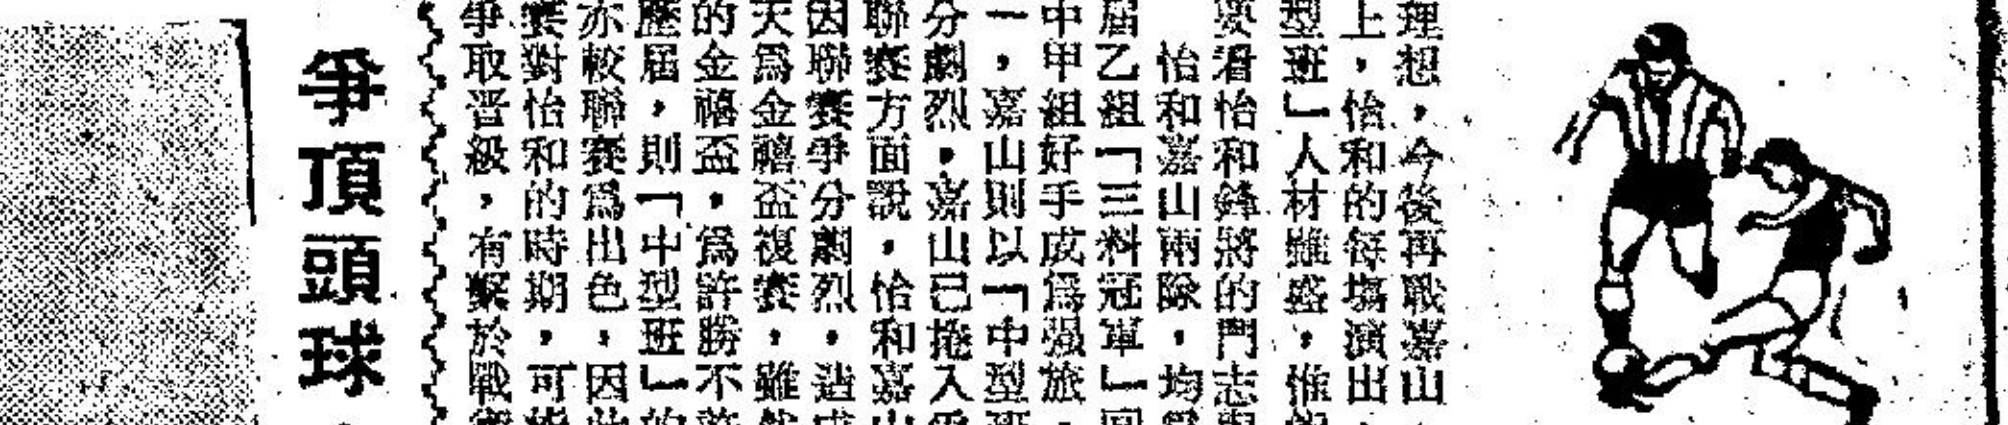 理想，今後再戰嘉山
上，怡和的每塲演出，
型班」人材雖盛，惟
要看怡和鋒將的鬥志
怡和嘉山兩隊，均
屆乙組「三料冠軍」
中甲組好手成爲强旅，
一，嘉山則以「中型
分劇烈，嘉山已捲入
聯賽方面說，怡和嘉山
因聯賽爭分劇烈，造成
天爲金禧盃複賽，雖然
的金禧盃，爲許勝不許
歷屆，則「中型班」的
亦較聯賽爲出色，因此
賽對怡和的時期，可能
爭取晋級，有繫於戰
爭頂頭球